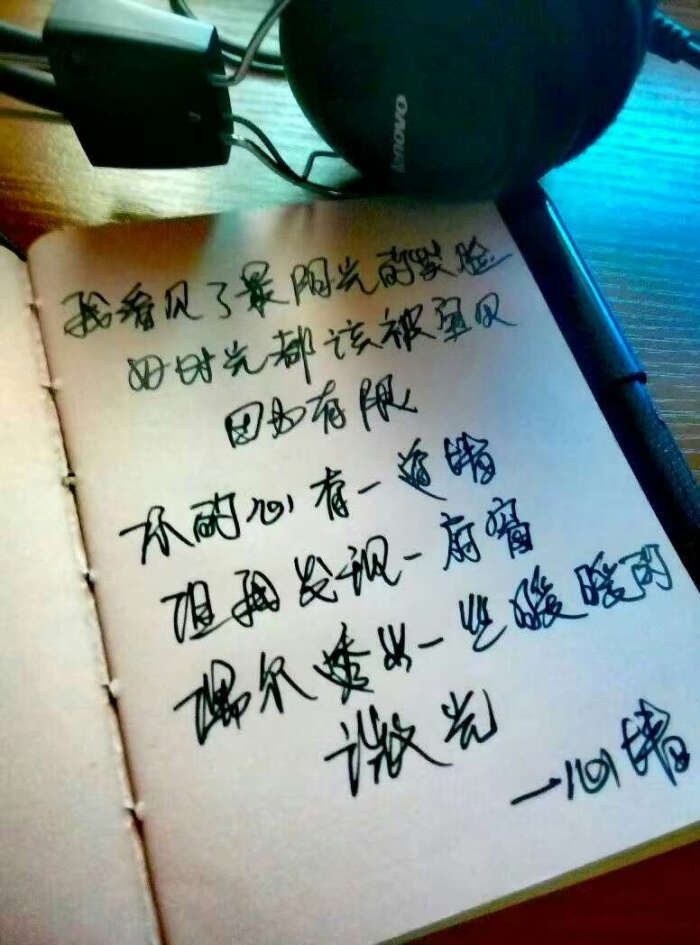 lenovo
我看见了最阳光的笑脸
好时光都该被宝贝
因为有限
你的心有一道墙
但我发现一扇窗
偶尔透出一丝暖暖的
微光
—心墙